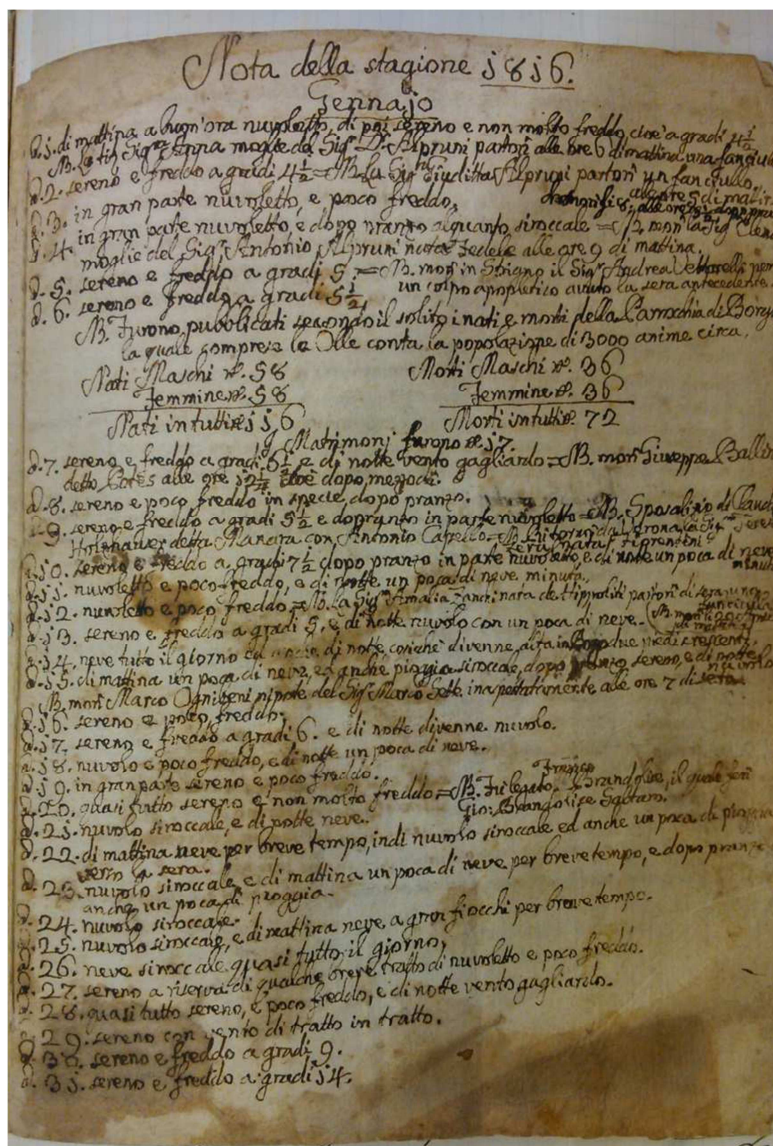 Nota della stagione 1816.
Gennajo
d. 1. di mattina a buon'ora nuvoletto, di poi sereno e non molto freddo, cioè a gradi 4 1/2
NB. La Sigra Anna moglie del Sigr Dr Alpruni partorì alle ore 6 di mattina una fanciulla
d. 2. sereno e freddo a gradi 4 1/2 = NB. La Sigra Giuditta Alpruni partorì un fanciullo,
d. 3. in gran parte nuvoletto, e poco freddo,
d. 4. in gran parte nuvoletto, e dopo pranzo alquanto siroccale = NB. morì la Sig.
moglie del Sigr Antonio Alpruni nata Fedele alle ore 9 di mattina.
d. 5. sereno e freddo a gradi 5 = NB. morì in Strigno il Sigr Andrea
un colpo apopletico avuto la sera antecedente.
d. 6. sereno e freddo a gradi 5 1/2,
NB. Furono pubblicati secondo il solito i nati e morti della Parrochia di Borgo
la quale compresa le Olle conta la popolazione di 3000 anime circa.
Nati Maschi No. 58 Morti Maschi No. 36
Femmine No. 58 Femmine No. 36
Nati in tutti No. 116 Morti in tutti No. 72
Matrimonj furono No. 17
d. 7. sereno e freddo a gradi 6 1/2 e di notte vento gagliardo = NB. morì Giuseppe
detto alle ore 12 1/2 cioè dopo mezzodì.
d. 8. sereno e poco freddo in specie dopo pranzo.
d. 9. sereno e freddo a gradi 5 1/2 e dopo pranzo in parte nuvoletto = NB. Sposalizio di
detta con Antonio Capello
d. 10. sereno e freddo a gradi 7 1/2 dopo pranzo in parte nuvoletto, e di notte un poca di neve
minuta
d. 11. nuvoletto e poco freddo, e di notte un poca di neve minuta.
d. 12. nuvoletto e poco freddo = NB. La Sigra Amalia nata de Hippoliti partorì di sera
d. 13. sereno e freddo a gradi 5. e di notte nuvolo con un poca di neve.
d. 14. neve tutto il giorno ed anche di notte, cosichè divenne alta due piedi crescenti.
d. 15. di mattina un poca di neve, ed anche pioggia siroccale, dopo pranzo sereno, e di notte
nuvolo
NB. morì Marco Ognibeni nipote del Sigr Marco Sette inaspettatamente alle ore 7 di sera
d. 16. sereno e poco freddo,
d. 17. sereno e freddo a gradi 6. e di notte divenne nuvolo.
d. 18. nuvolo e poco freddo, e di notte un poca di neve.
d. 19. in gran parte sereno e poco freddo.
d. 20. quasi tutto sereno e non molto freddo = NB. Fu legato Brandolise, il quale
Gio: Brandolise
d. 21. nuvolo siroccale, e di notte neve.
d. 22. di mattina neve per breve tempo, indi nuvolo siroccale ed anche un poca di pioggia
verso la sera.
d. 23. nuvolo siroccale, e di mattina un poca di neve per breve tempo, e dopo pranzo
anche un poca di pioggia.
d. 24. nuvolo siroccale.
d. 25. nuvolo siroccale, e di mattina neve a gran fiocchi per breve tempo.
d. 26. neve siroccale quasi tutto il giorno,
d. 27. sereno a riserva di qualche breve tratto di nuvoletto e poco freddo.
d. 28. quasi tutto sereno, e poco freddo, e di notte vento gagliardo.
d. 29. sereno con vento di tratto in tratto.
d. 30. sereno e freddo a gradi 9.
d. 31. sereno e freddo a gradi 14.